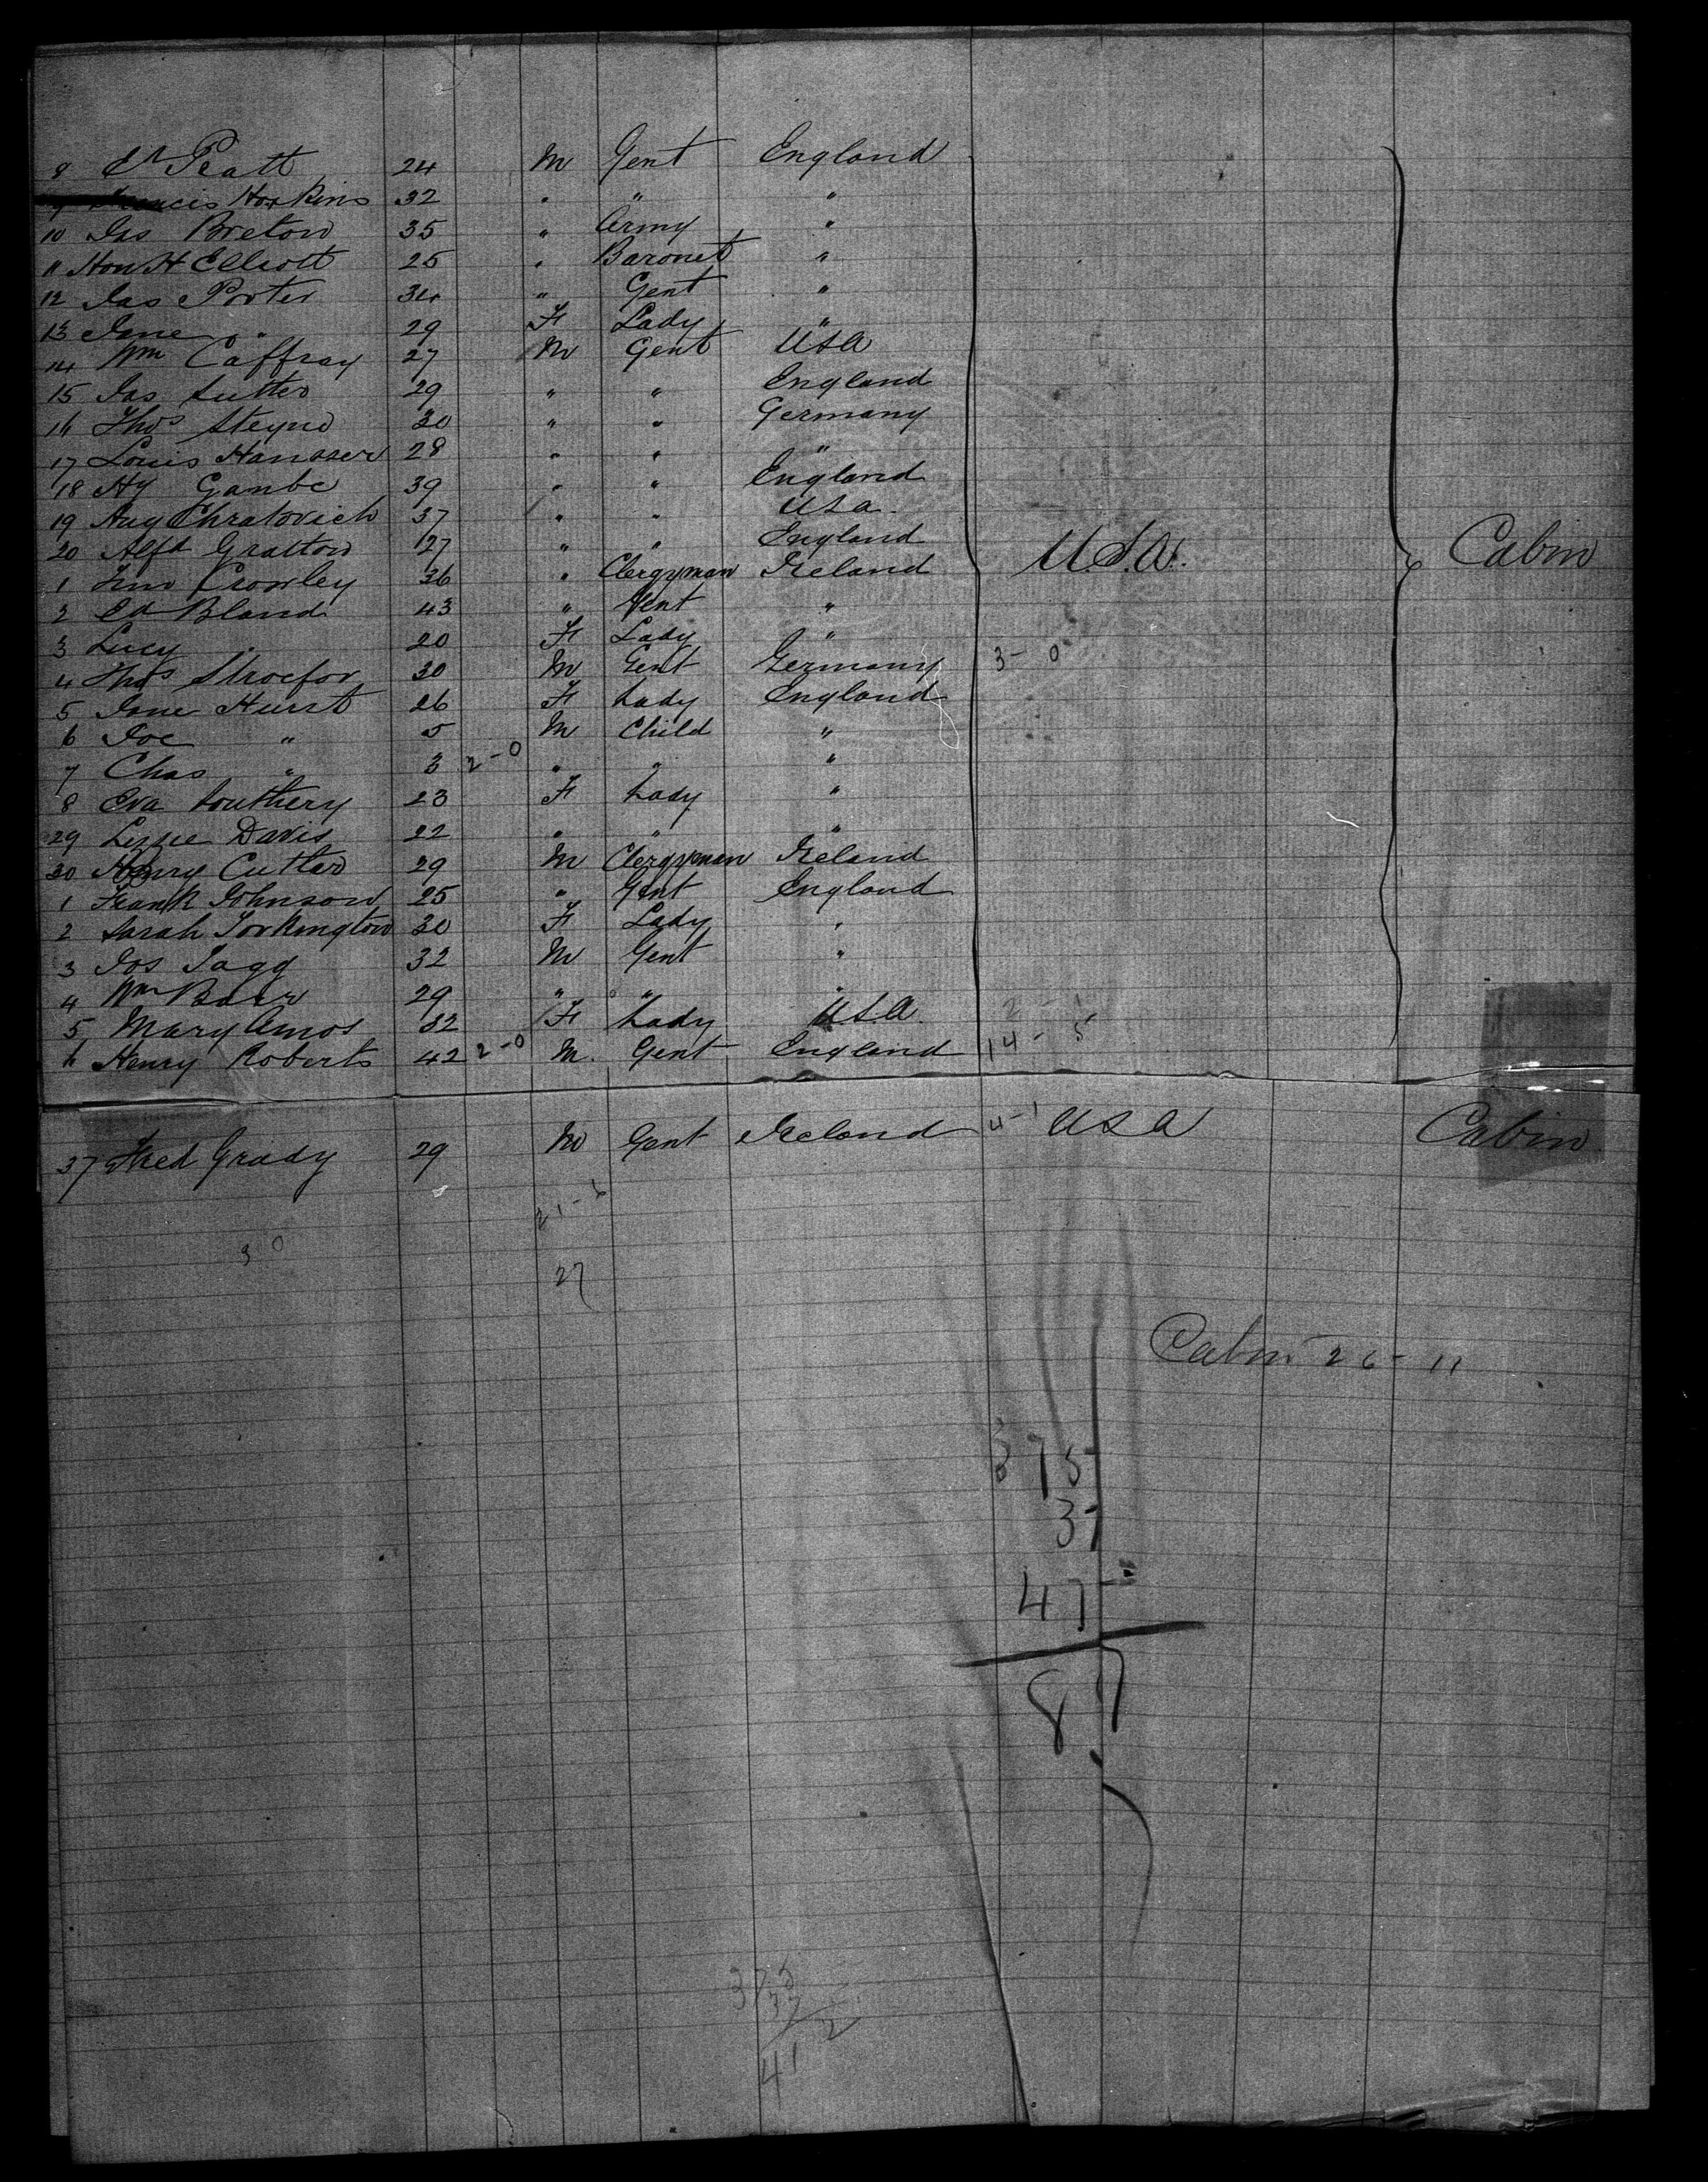 8 Ed Peatt 24 M Gent England
Francis Hoskins 32 " " "
10 Jas Breton 35 " Army "
11 Hon H Elliott 25 " Baronet "
12 Jas Porter 34 " Gent "
13 Jane " 29 F Lady "
14 Wm Caffray 27 M Gent USA
15 Jas Sutter 29 " " England
16 Thos Steyne 30 " " Germany
17 Louis Hanoser 28 " " "
18 Hy Gambe 39 " " England
19 Aug Chratovich 37 " " USA
20 Alfd Gratton 27 " " England U.S.A. Cabin
1 Crowley 36 " Clergyman Ireland
2 Ed Bland 43 " Gent "
3 Lucy " 20 F Lady "
4 Thos Stroefor 30 M Gent Germany 3-0
5 Jane Hurst 26 F Lady England
6 Joe " 5 M Child "
7 Chas " 3 2-0 " " "
8 Eva Southery 23 F Lady "
29 Lizzie Davis 22 " " "
30 Henry Cutler 29 M Clergyman Ireland
1 Frank Johnson 25 " Gent England
2 Sarah Torkington 30 F Lady "
3 Jos Tagg 32 M Gent "
4 Wm Barr 29 " " "
5 Mary Amos 32 F Lady U.S.A. 2-1
6 Henry Roberts 42 2-0 M Gent England 14-5
37 Fred Grady 29 M Gent Ireland 4-1 USA Cabin
21-6
30
27
Cabin 26-11
375
37
47
87
375
37
2
41